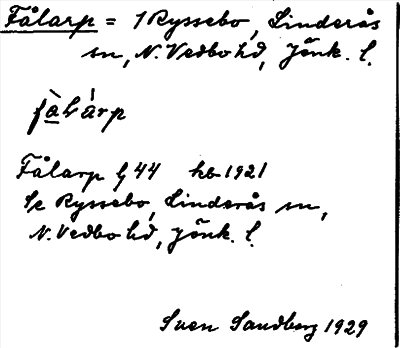 Fålarp = 1 Ryssebo, Linderås
sn, N. Vedbo hd, Jönk. l.
fàlárp
Fålarp lj 44 hb 1921
Se Ryssebo, Linderås sn,
N. Vedbo hd, Jönk. l.
Sven Sandberg 1929